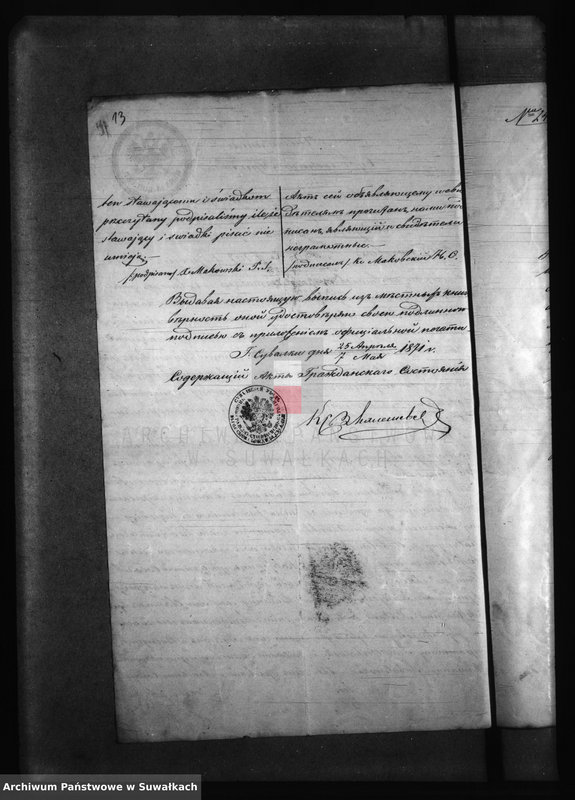 13
№ 24
ten Stawającemu i świadkom
przeczytany podpisaliśmy
stawający i świadki pisać nie
umieją.
/podpisano/ X. Makowski P. S.
Актъ сей объявляющему и сви-
дѣтелямъ прочитанъ, нами под-
писанъ, являющій и свидѣтели
неграмотные. —
/подписалъ/ Кс. Маковскій Н. С.
Выдавая настоящую выпись изъ мѣстныхъ книгъ
вѣрность оной удостовѣряю своею подлинною
подписью съ приложеніемъ оффиціальной печати
Г. Сувалки дня 25 Апрѣля / 7 Мая 1871 г.
Содержащій Акты Гражданскаго Состоянія
ARCHIWUM PAŃSTWOWE
W SUWAŁKACH
Archiwum Państwowe w Suwałkach